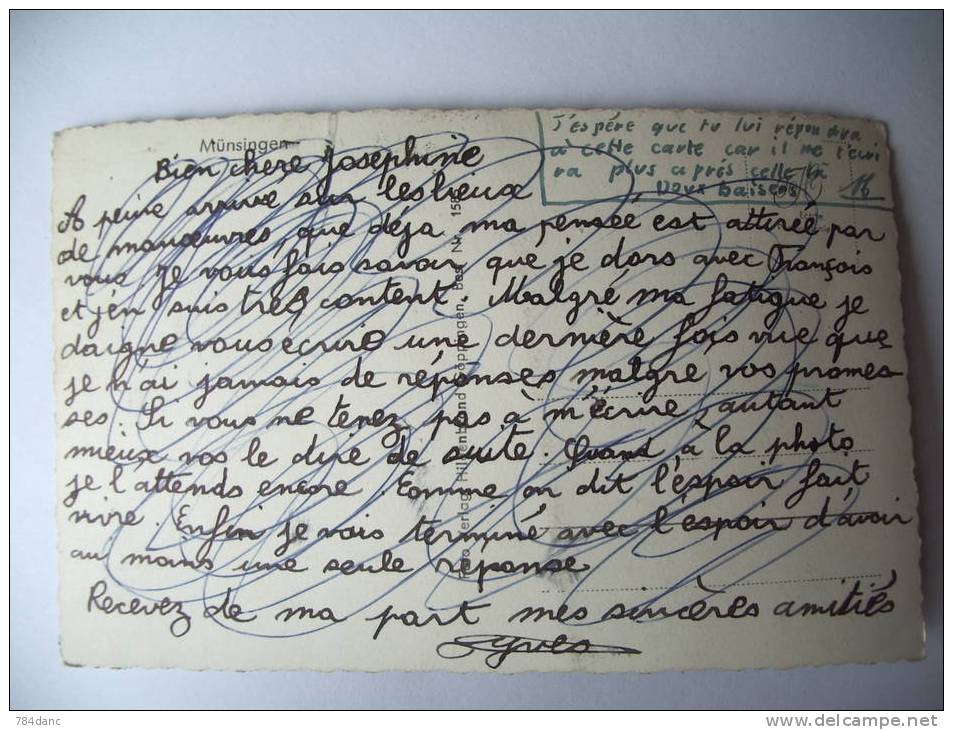 Münsingen
J'espère que tu lui répondra
à cette carte car il ne t'écri
ra plus après celle là
Doux baisers
Bien chere Josephine
A peine arrivé sur les lieux
de manœuvres, que déja ma pensée est attirée par
vous. Je vous fais savoir que je dors avec François
et j'en suis très content. Malgré ma fatigue je
daigne vous écrire une dernière fois vie que
je n'ai jamais de réponses malgré vos promes-
ses. Si vous ne tenez pas à m'écrire, autant
mieux vos le dire de suite. Quand à la photo
je l'attends encore. Comme on dit l'espoir fait
vivre. Enfin je vais terminé avec l'espoir d'avoir
au moins une seule réponse
Recevez de ma part mes sincères amitiés
Yves
Göppingen. Best. Nr. 158
784danc
delcampe.net